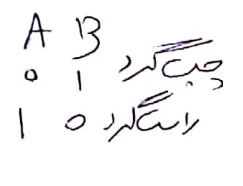 A B
0 1 چپ گرد
1 0 راست گرد